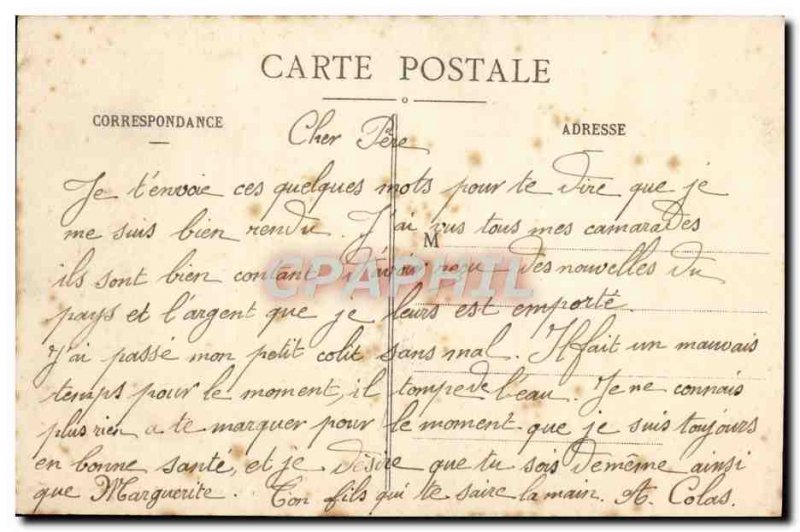 CARTE POSTALE
CORRESPONDANCE
ADRESSE
Cher Père
Je t'envoie ces quelques mots pour te dire que je
me suis bien rendu. J'ai vus tous mes camarades
M
ils sont bien contant d'avoir reçu des nouvelles du
pays et l'argent que je leurs est emporté.
J'ai passé mon petit colit sans mal. Il fait un mauvais
temps pour le moment, il tompe de l'eau. Je ne connais
plus rien a te marquer pour le moment que je suis toujours
en bonne sante, et je désire que tu sois de même ainsi
que Marguerite. Ton fils qui te saire la main. A. Colas.
CPAPHIL